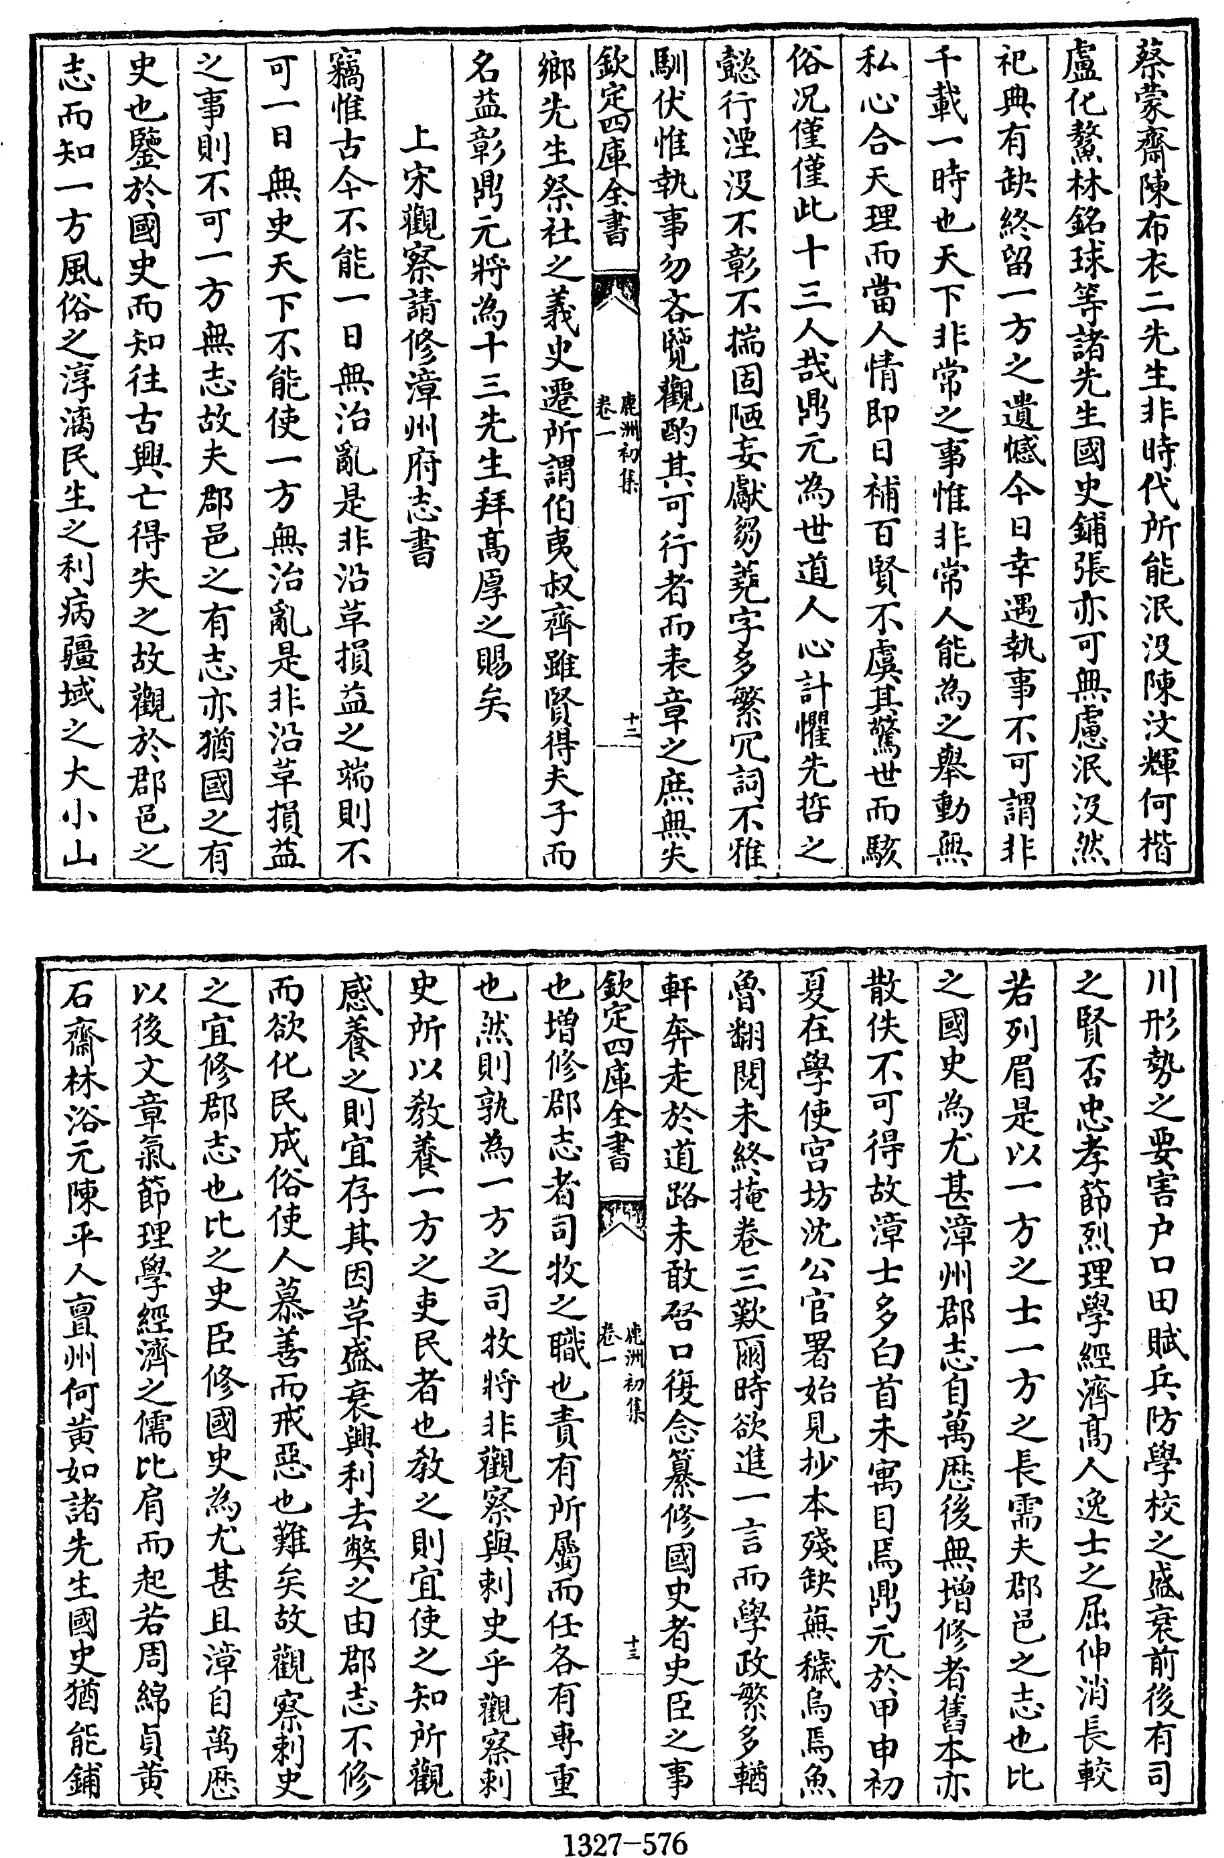 蔡蒙齋陳布衣二先生非時代所能泯沒陳汶輝何楷
盧化鰲林銘球等諸先生國史鋪張亦可無慮泯沒然
祀典有缺終留一方之遺憾今日幸遇執事不可謂非
千載一時也天下非常之事惟非常人能為之舉動無
私心合天理而當人情即日補百賢不虞其驚世而駭
俗况僅僅此十三人哉鼎元為世道人心計懼先哲之
懿行湮沒不彰不揣固陋妄獻芻蕘字多繁冗詞不雅
馴伏惟執事勿吝覽觀酌其可行者而表章之庶無失
欽定四庫全書
鹿洲初集
卷一
十二
鄉先生祭社之義史遷所謂伯夷叔齊雖賢得夫子而
名益彰鼎元將為十三先生拜高厚之賜矣
上宋觀察請修漳州府志書
竊惟古今不能一日無治亂是非沿革損益之端則不
可一日無史天下不能使一方無治亂是非沿革損益
之事則不可一方無志故夫郡邑之有志亦猶國之有
史也鑒於國史而知往古興亡得失之故觀於郡邑之
志而知一方風俗之淳漓民生之利病疆域之大小山
川形勢之要害户口田賦兵防學校之盛衰前後有司
之賢否忠孝節烈理學經濟高人逸士之屈伸消長較
若列眉是以一方之士一方之長需夫郡邑之志也比
之國史為尤甚漳州郡志自萬歷後無增修者舊本亦
散佚不可得故漳士多白首未寓目焉鼎元於甲申初
夏在學使宫坊沈公官署始見抄本殘缺蕪穢烏焉魚
魯翻閱未終掩卷三歎爾時欲進一言而學政繁多輶
軒奔走於道路未敢啓口復念纂修國史者史臣之事
欽定四庫全書
鹿洲初集
卷一
十三
也增修郡志者司牧之職也責有所屬而任各有專重
也然則孰為一方之司牧將非觀察與刺史乎觀察刺
史所以教養一方之吏民者也教之則宜使之知所觀
感養之則宜存其因革盛衰興利去弊之由郡志不修
而欲化民成俗使人慕善而戒惡也難矣故觀察刺史
之宜修郡志也比之史臣修國史為尤甚且漳自萬歷
以後文章氣節理學經濟之儒比肩而起若周綿貞黄
石齋林浴元陳平人亶州何黄如諸先生國史猶能鋪
1327-576